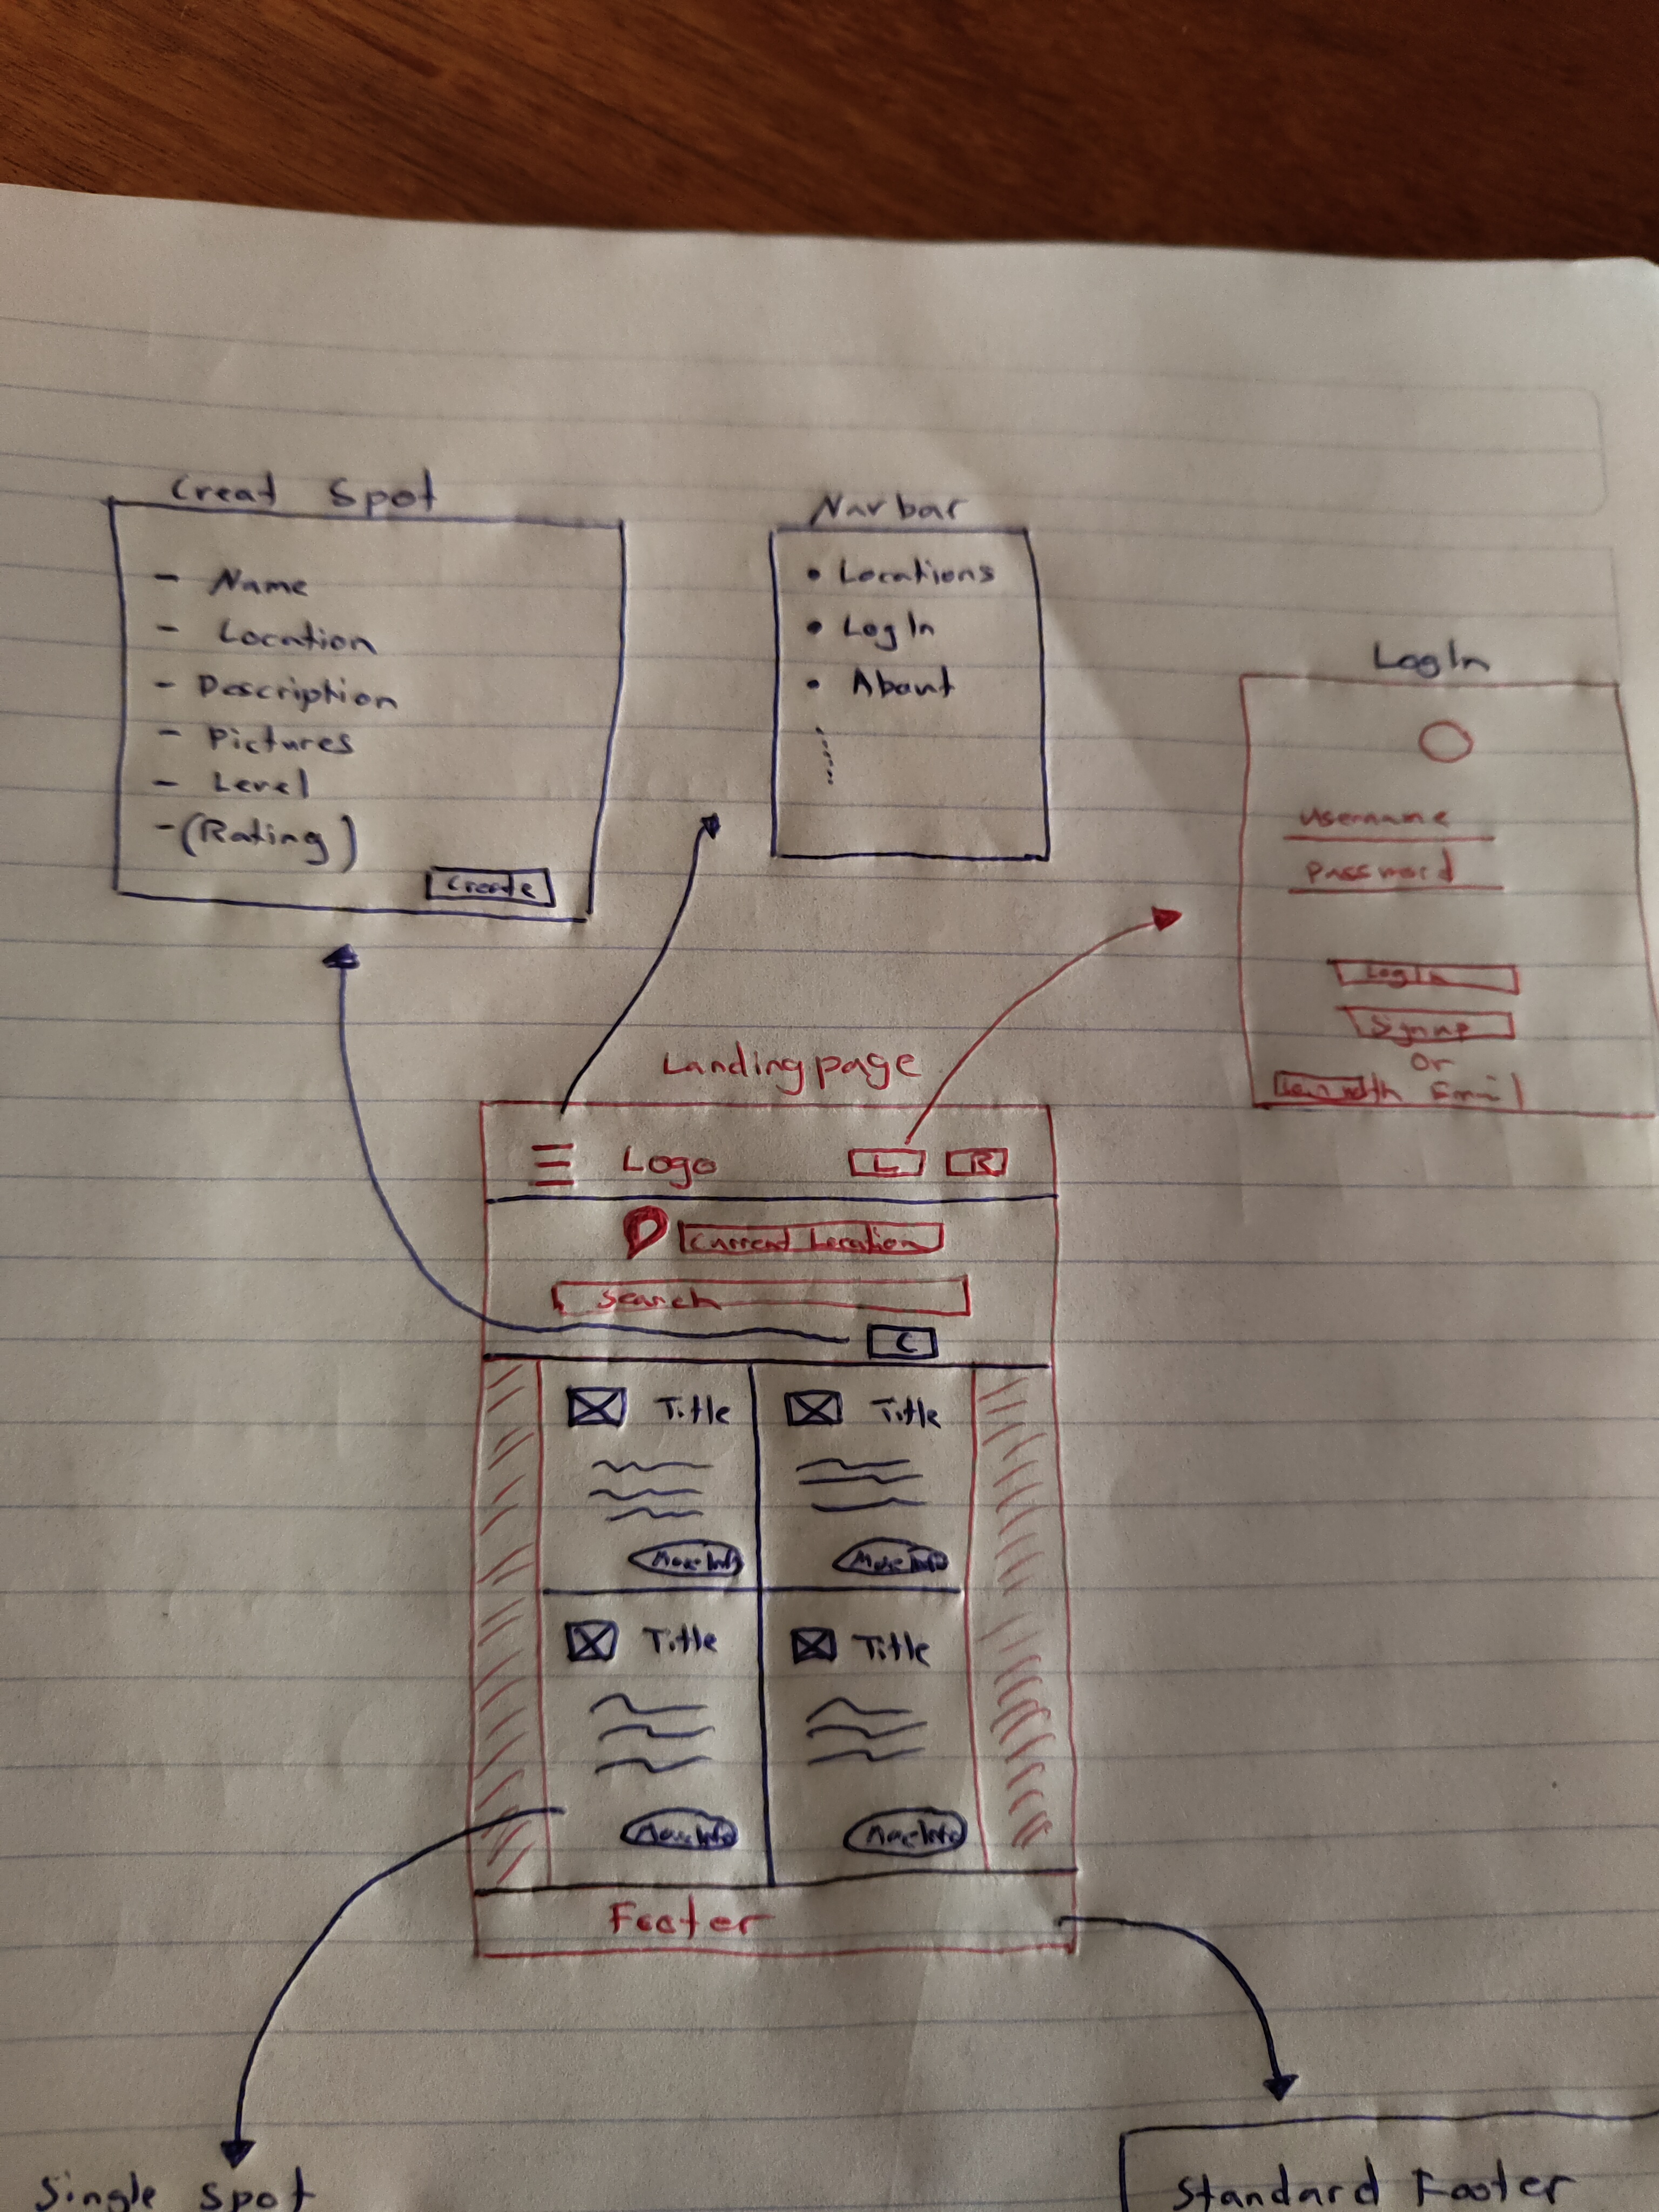 Creat Spot
- Name
- Location
- Description
- Pictures
- Level
- (Rating)
Create
Navbar
• Locations
• LogIn
• About
LogIn
Username
Password
LogIn
Signup
or
with Email
Landingpage
Logo
L
R
Current Location
Search
C
Title
More Info
Title
More Info
Title
More Info
Title
More Info
Footer
Single Spot
Standard Footer